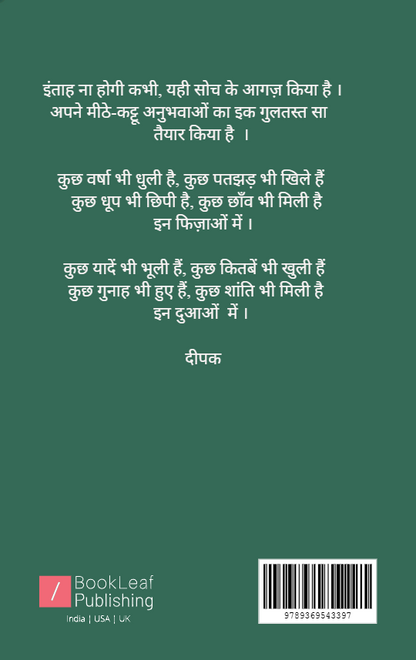 इंताह ना होगी कभी, यही सोच के आगज़ किया है ।
अपने मीठे-कट्टू अनुभवाओं का इक गुलतस्त सा
तैयार किया है ।
कुछ वर्षा भी धुली है, कुछ पतझड़ भी खिले हैं
कुछ धूप भी छिपी है, कुछ छाँव भी मिली है
इन फिज़ाओं में ।
कुछ यादें भी भूली हैं, कुछ कितबें भी खुली हैं
कुछ गुनाह भी हुए हैं, कुछ शांति भी मिली है
इन दुआओं में ।
दीपक
BookLeaf
Publishing
India | USA | UK
9789369543397